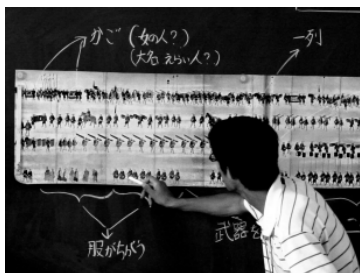 かご(女の人?)
(大名 えらい人?)
一列
服がちがう
武器を